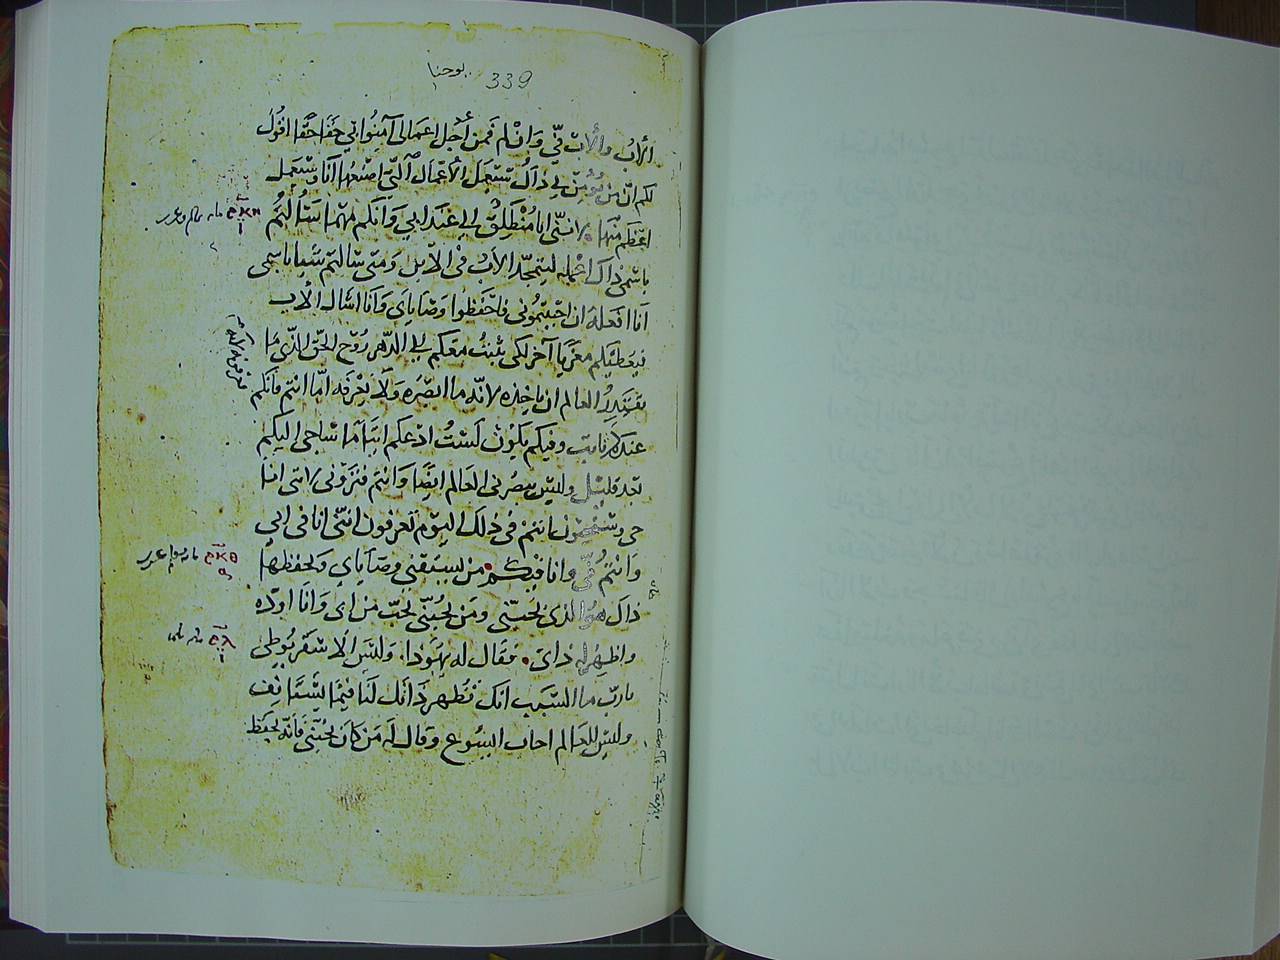 يوحنا 339
الاب والاب فيّ وان لم فمن اجل اعمالى آمنوا بي حقا حقا اقول
لكم ان من يؤمن بي ذاك ستعمل الاعمال التي اصنعها انا وتعمل
اعظم منها لانني انا منطلق الي عند ابي وانكم مهما سألتم
باسمي ذاك اعمله ليتمجد الاب في الابن ومتى سالتم شيا باسمي
انا افعله ان احببتموني فاحفظوا وصاياي وانا اسال الاب
فيعطيكم معزيا آخر لكي يثبت معكم الي الدهر روح الحق الذي ما
يقتدر العالم ان ياخذه لانه ما ابصره ولا يعرفه اما انتم فانكم
عندكم ثابت وفيكم يكون لست ادعكم ايتاما ساجي اليكم
بعد قليل وليس يبصرني العالم ايضا وانتم فترونى لانى انا
حي وستحيون انتم في ذلك اليوم تعرفون انني انا في ابي
وانتم فيّ وانا فيكم من يستبقني وصاياي ويحفظها
ذاك هو الذي يحبني ومن يحبني يحب من ابى وانا اوده
واظهر له ذاتى فقال له يهودا وليس الاسقريوطي
يا رب ما السبب انك تظهر ذاتك لنا فيما يستانف
وليس للعالم اجاب ايسوع وقال له من كان يحبني فانه يحفظ